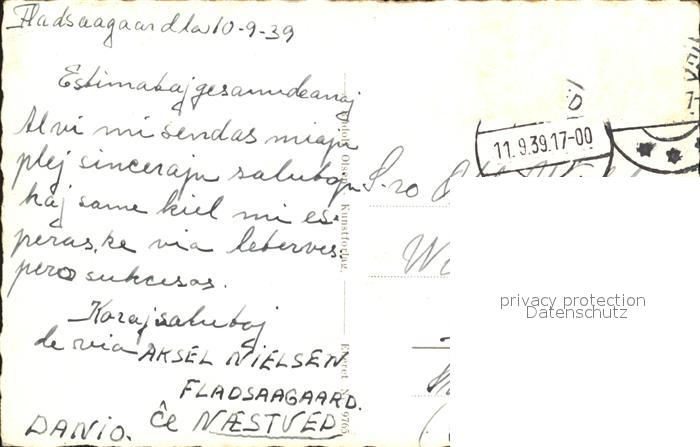 Fladsaagaard la 10-9-39
Estimataj gesamideanoj
Al vi mi sendas miajn
plej sincerajn salutojn
kaj same kiel mi es-
peras, ke via leterves-
pero sukcesas.
Koraj salutoj
de via AKSEL NIELSEN
FLADSAAGAARD.
ĉe NÆSTVED
DANIO.
S-ro
11.9.39.17-00
Olsen, Kunstforlag.
Eneret
privacy protection
Datenschutz